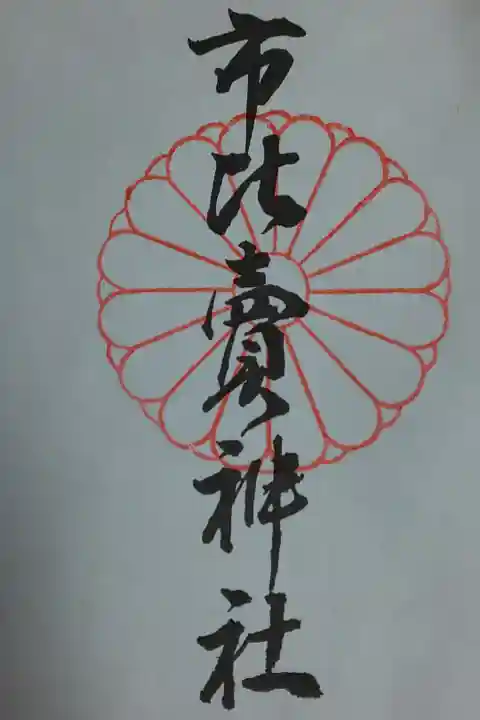 市比賣神社